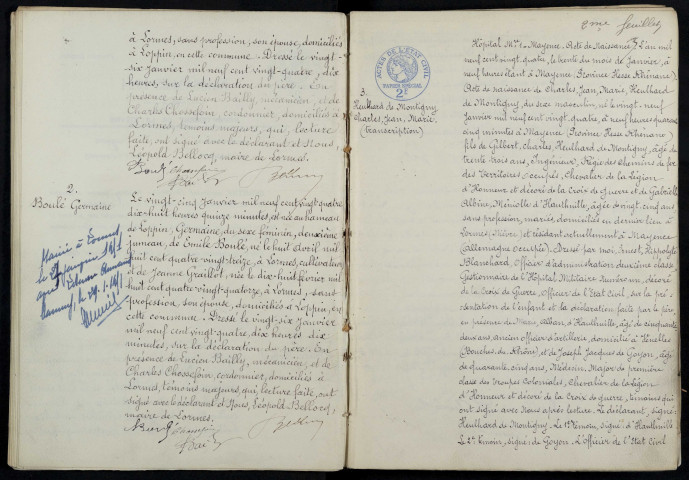 à Lormes, sans profession, son épouse, domiciliés
à Loppin, en cette commune. Dressé le vingt-
six janvier mil neuf cent vingt-quatre, dix
heures, sur la déclaration du père. En
présence de Lucien Bailly, mécanicien, et de
Charles Chossefoin, cordonnier, domiciliés à
Lormes, témoins majeurs, qui, lecture
faite, ont signé avec le déclarant et Nous,
Léopold Bellocq, maire de Lormes.
2.
Boulé Germaine
Le vingt-cinq janvier mil neuf cent vingt-quatre
dix-huit heures quinze minutes, est née au hameau
de Loppin, Germaine, du sexe féminin, deuxième
jumeau, de Emile Boulé, né le huit avril mil
huit cent quatre-vingt-treize, à Lormes, cultivateur
et de Jeanne Graillot, née le dix-huit février mil
huit cent quatre-vingt-quatorze, à Lormes, sans
profession, son épouse, domiciliés à Loppin, en
cette commune. Dressé le vingt-six janvier
mil neuf cent vingt-quatre, dix heures dix
minutes, sur la déclaration du père. En
présence de Lucien Bailly, mécanicien, et de
Charles Chossefoin, cordonnier, domiciliés à
Lormes, témoins majeurs, qui, lecture faite, ont
signé avec le déclarant et Nous, Léopold Bellocq,
maire de Lormes.
2me feuillet
ACTES DE L'ETAT CIVIL
2F
3.
Heulhard de Montigny
Charles, Jean, Marie
(transcription)
Hôpital Mre - Mayence. Acte de Naissance. L'an mil
neuf cent vingt quatre, le trente du mois de Janvier, à
neuf heures étant à Mayence (Province Hesse Rhénane)
Acte de naissance de Charles, Jean, Marie, Heulhard
de Montigny, du sexe masculin, né le vingt-neuf
Janvier mil neuf cent vingt quatre, à neuf heures quarante
cinq minutes à Mayence (Province Hesse Rhénane)
fils de Gilbert, Charles, Heulhard de Montigny, âgé de
trente trois ans, Ingénieur, Régie des Chemins de fer
des Territoires occupés, Chevalier de la Légion
d'Honneur et décoré de la Croix de guerre et de Gabrielle
Albine, d'Hauthuille, âgée de vingt cinq ans
sans profession, mariés domiciliés en dernier lieu à
Lormes, Nièvre et résidant actuellement à Mayence
(Allemagne occupée). Dressé par moi, Ernest, Hippolyte
Blanchard, Officier d'administration deuxième classe,
Gestionnaire de l'Hôpital Militaire, décoré
de la Croix de Guerre, Officier de l'Etat Civil, sur la pré-
sentation de l'enfant et la déclaration faite par le père,
en présence de Alban, d'Hauthuille, âgé de cinquante
deux ans, ancien officier d'artillerie, domicilié à
(Bouches du Rhône), et de Joseph Jacques de Goyon, âgé
de quarante cinq ans, Médecin, Major de première
classe des Troupes Coloniales, Chevalier de la Légion
d'Honneur et décoré de la Croix de guerre, témoins qui
ont signé avec Nous après lecture. Le déclarant, signé:
Heulhard de Montigny. Le 1er témoin, signé: d'Hauthuille
Le 2e témoin, signé: de Goyon. L'Officier de l'Etat Civil